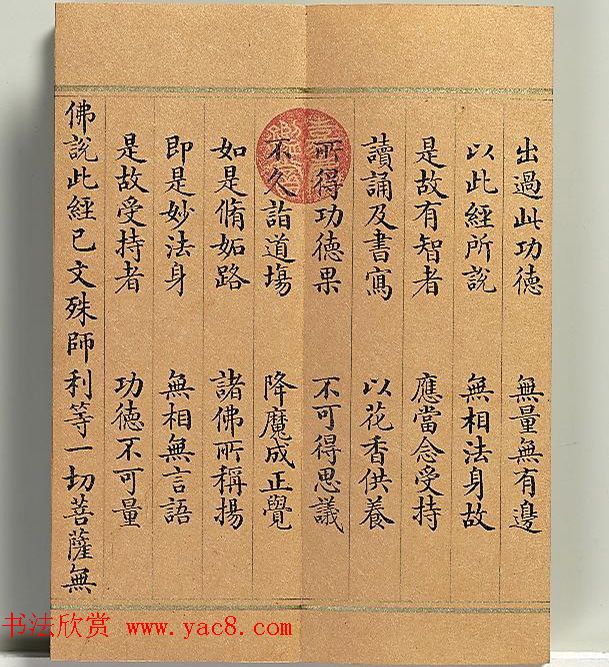 出過此功德 無量無有邊
以此經所說 無相法身故
是故有智者 應當念受持
讀誦及書寫 以花香供養
所得功德果 不可得思議
不久詣道塲 降魔成正覺
如是脩妬路 諸佛所稱揚
即是妙法身 無相無言語
是故受持者 功德不可量
佛說此經已文殊師利等一切菩薩無
书法欣赏 www.yac8.com